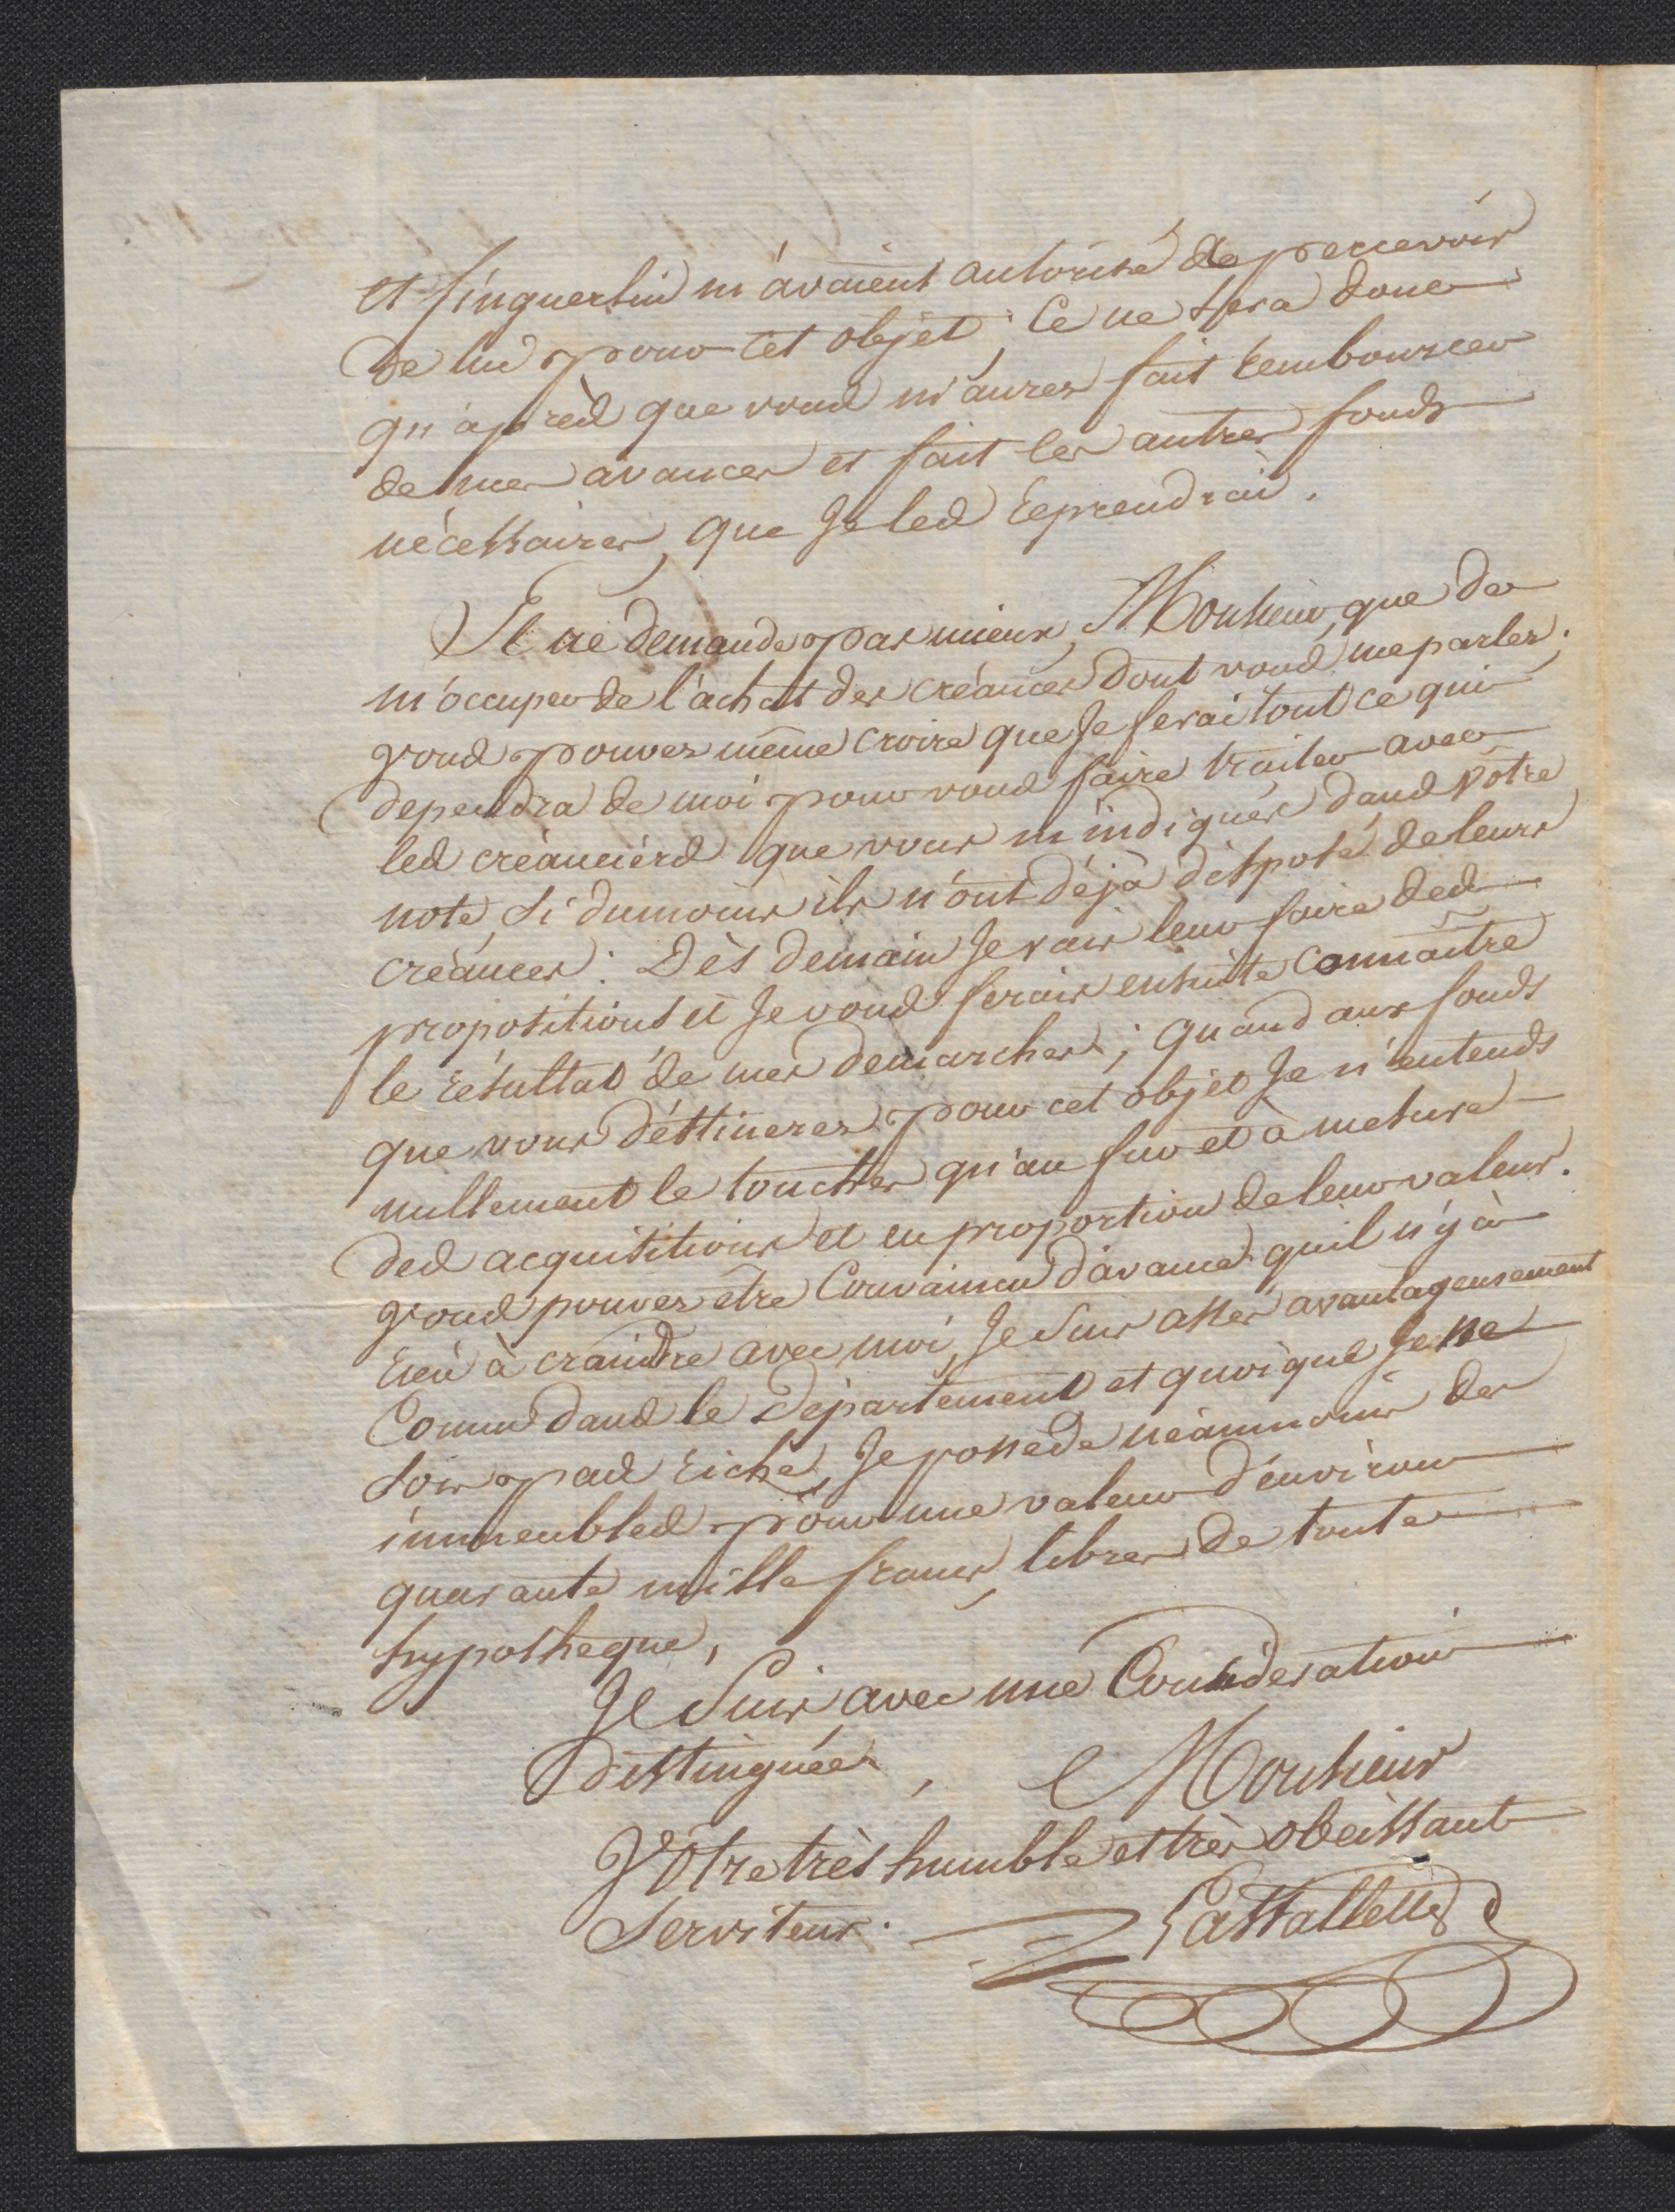 et finguerlin m'avaient autorisé de percevoir
de lui pour cet objet; Ce ne sera donc
qu'après que vous m'aurez fait rembourcer
de mes avances et fait les autres fonds
nécessaires, que Je les reprendrai.
Je ne demande pas mieux, Monsieur, que de
m'occuper de l'achat des créances dont vous me parlez;
vous pouvez même croire que Je ferai tout ce qui
dependra de moi pour vous faire traiter avec
les créanciérs que vous m'indiqués dans vôtre
note, si dumoins ils n'ont déjà disposé de leurs
créances: Dès demain Je vais leur faire des
propositions et Je vous ferais ensuite connaître
le résultat de mes démarches; quand aux fonds
que vous déstinerez pour cet objet Je n'entends
nullement le toucher qu'au fur et à mesure
des acquisitions et en proportion de leur valeur.
vous pouvez être Convaincu d'avance quil n'y à
rien à craindre avec moi, Je suis assés avantageusement
Connu dans le Département et quoique Je ne
sois pas riche, Je possède néanmoins des
immeubles pour une valeur d'environ
quarante mille francs, libres de toute
hypotheque,
Je suis avec une Consideration
distinguée, Monsieur
Votre très humble et très obeissant
Serviteur. Castallette